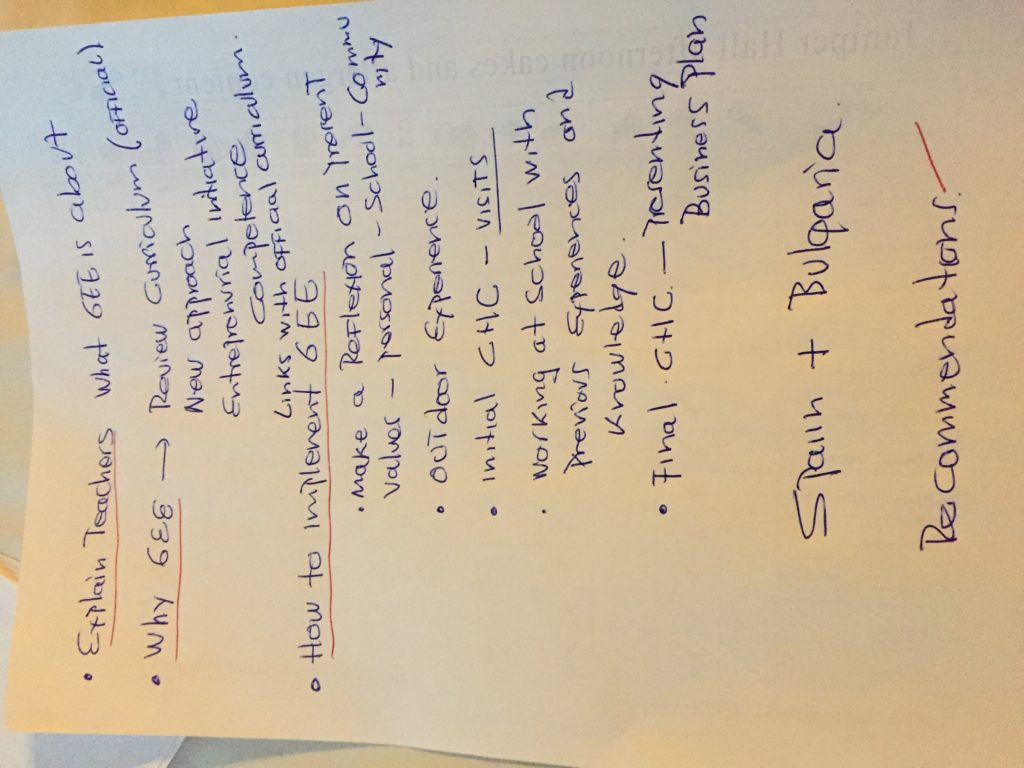 • Explain Teachers what GEE is about
• Why GEE → Review Curriculum (official)
New approach
Entreprenurial Initiative
Competence
Links with official curriculum.
• How to implement GEE
• Make a Reflexion on parent
values – personal – School – Commu
nity
• OUTdoor Experience.
• initial CHC – visits
• working at School with
previous Experiences and
Knowledge.
• Final CHC – Presenting
Business plan
Spain + Bulgaria
Recommendations.
Juniper Hall afternoon cakes and